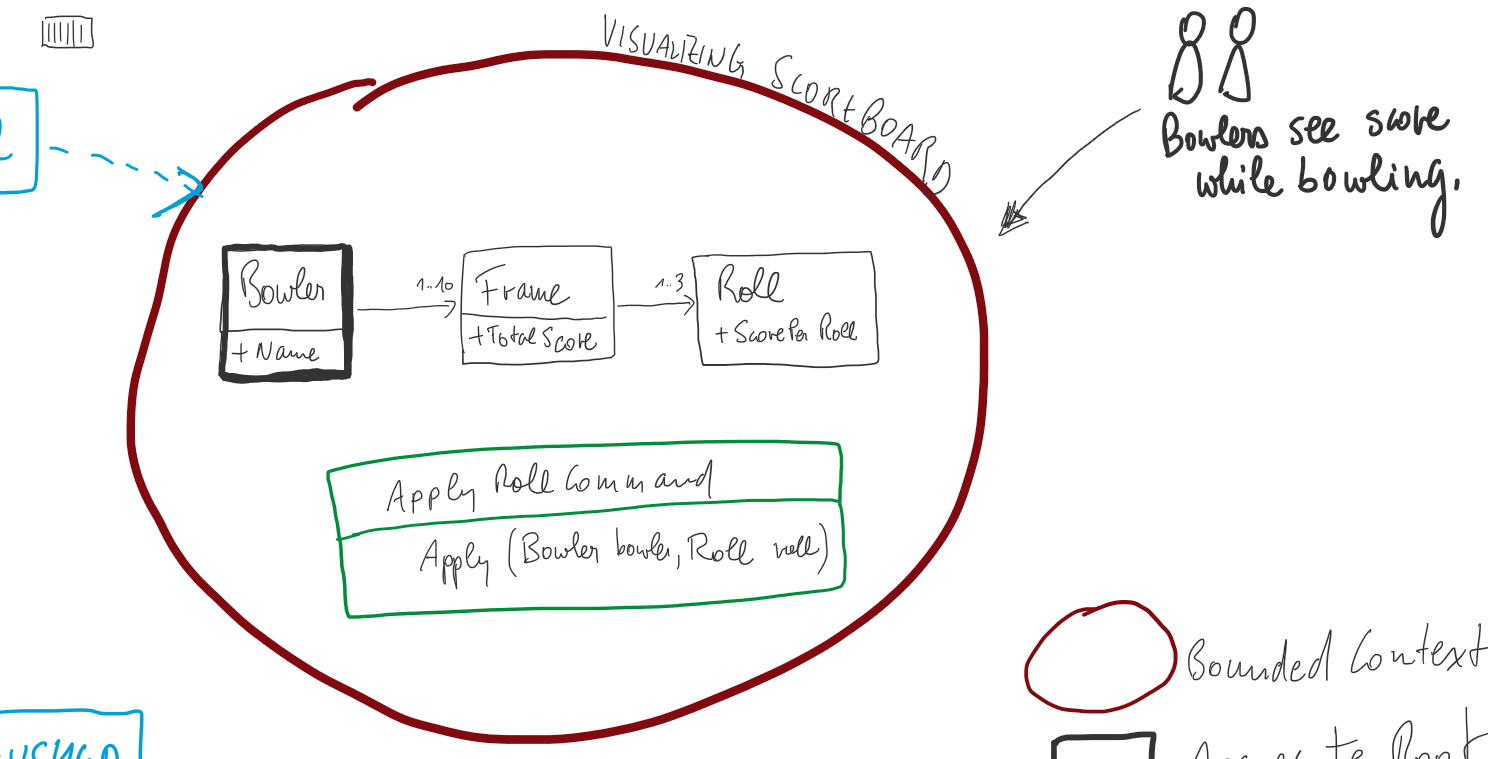 VISUALIZING SCOREBOARD
Bowlers see score
while bowling.
Bowler
+ Name
1..10
Frame
+TotalScore
1..3
Roll
+ ScorePer Roll
Apply Roll Command
Apply (Bowler bowler, Roll roll)
Bounded Context
Root